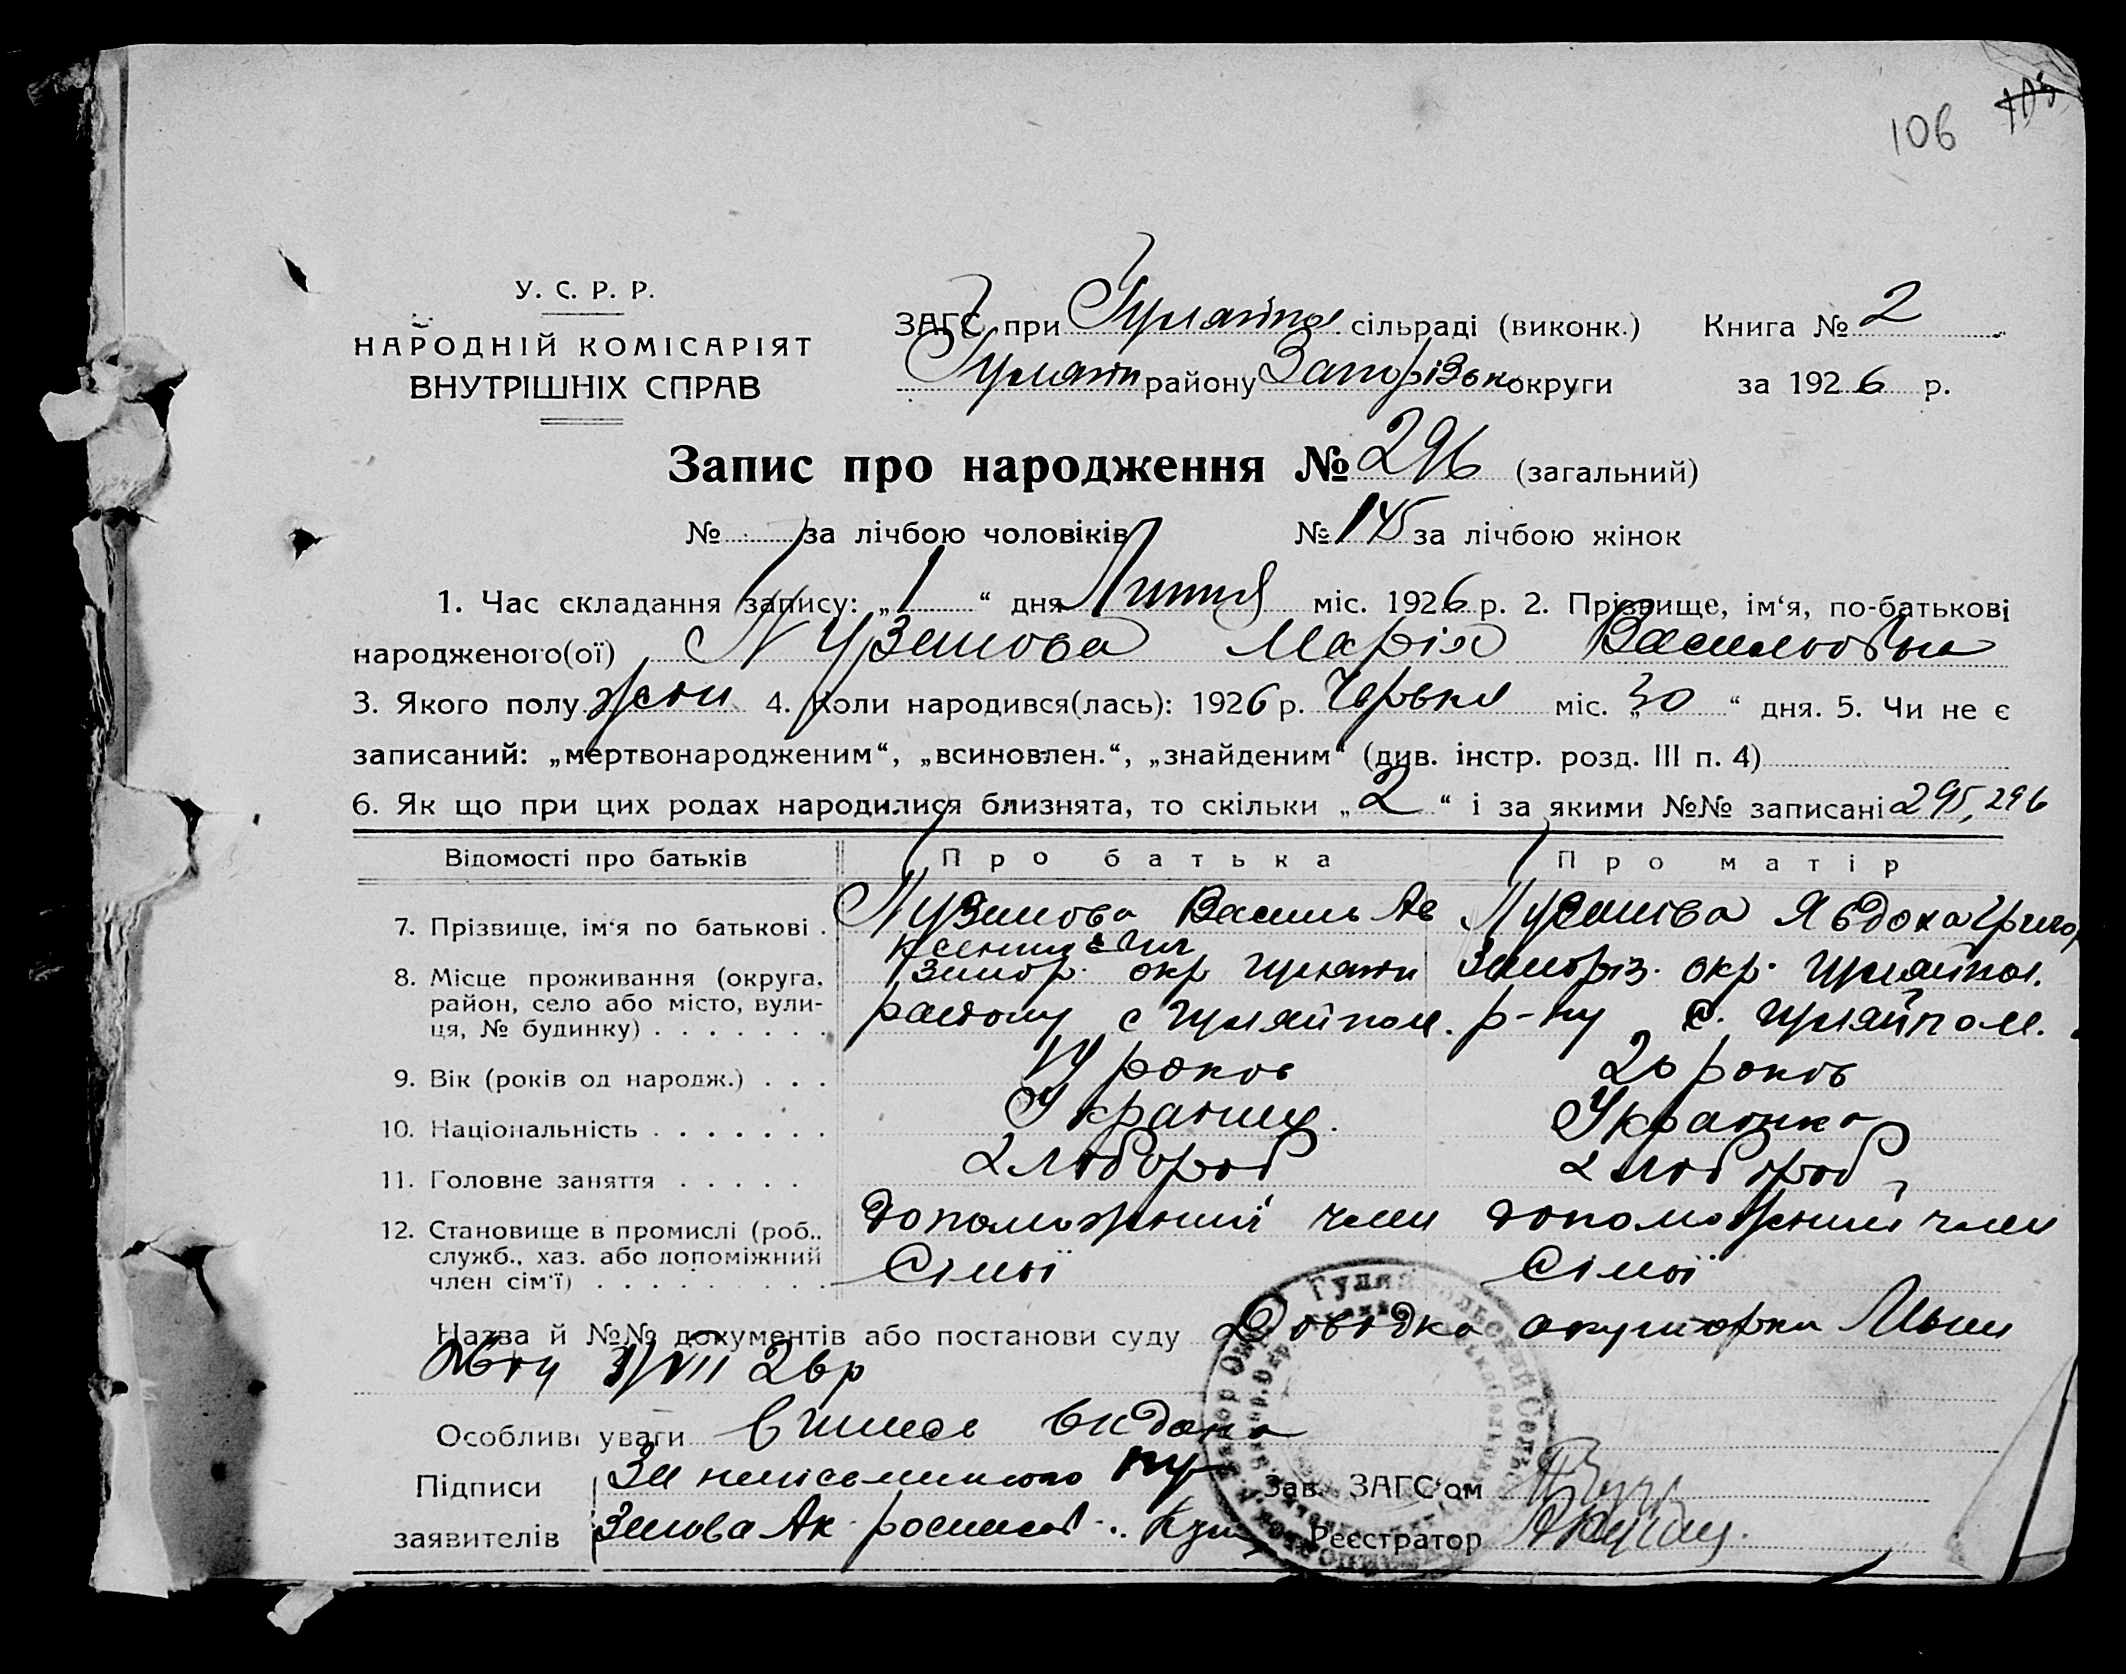 106 105
У. С. Р. Р.
НАРОДНІЙ КОМІСАРІЯТ
ВНУТРІШНІХ СПРАВ
ЗАГС при Гуляйпол сільраді (виконк.) Книга № 2
Гуляйп району Запорізьк округи за 1926 р.
Запис про народження № 296 (загальний)
№ за лічбою чоловіків № 145 за лічбою жінок
1. Час складання запису: „1“ дня Липня міс. 1926 р. 2. Прізвище, ім‘я, по-батькові
народженого(ої) Пузинова Марія Васильовна
3. Якого полу жін 4. Коли народився(лась): 1926 р. Червня міс. „30“ дня. 5. Чи не є
записаний: „мертвонародженим“, „всиновлен.“, „знайденим“ (див. інстр. розд. III п. 4)
6. Як що при цих родах народилися близнята, то скільки „2“ і за якими №№ записані 295, 296
Відомості про батьків Про батька Про матір
7. Прізвище, ім‘я по батькові . Пузинова Василь Ав Пузинова Явдоха Григо
8. Місце проживання (округа, окр Гуляйп Запоріз. окр. Гуляйпол.
район, село або місто, вули- району с Гуляйпол. р-ну с. Гуляйпол.
ця, № будинку)
9. Вік (років од народж.) . . . 19 роков 20 роков
10. Національність Українец Українка
11. Головне заняття хлібороб хлібороб
12. Становище в промислі (роб., допоможний член допоможний член
служб., хаз. або допоміжний сімї сімї
член сім‘ї)
Назва й №№ документів або постанови суду Довідка акушерки
1/VII 26 р
Особливі уваги Випись видана
Підписи За неписьменного Пу Зав. ЗАГС‘ом
заявителів зинова Ак росписався Реєстратор